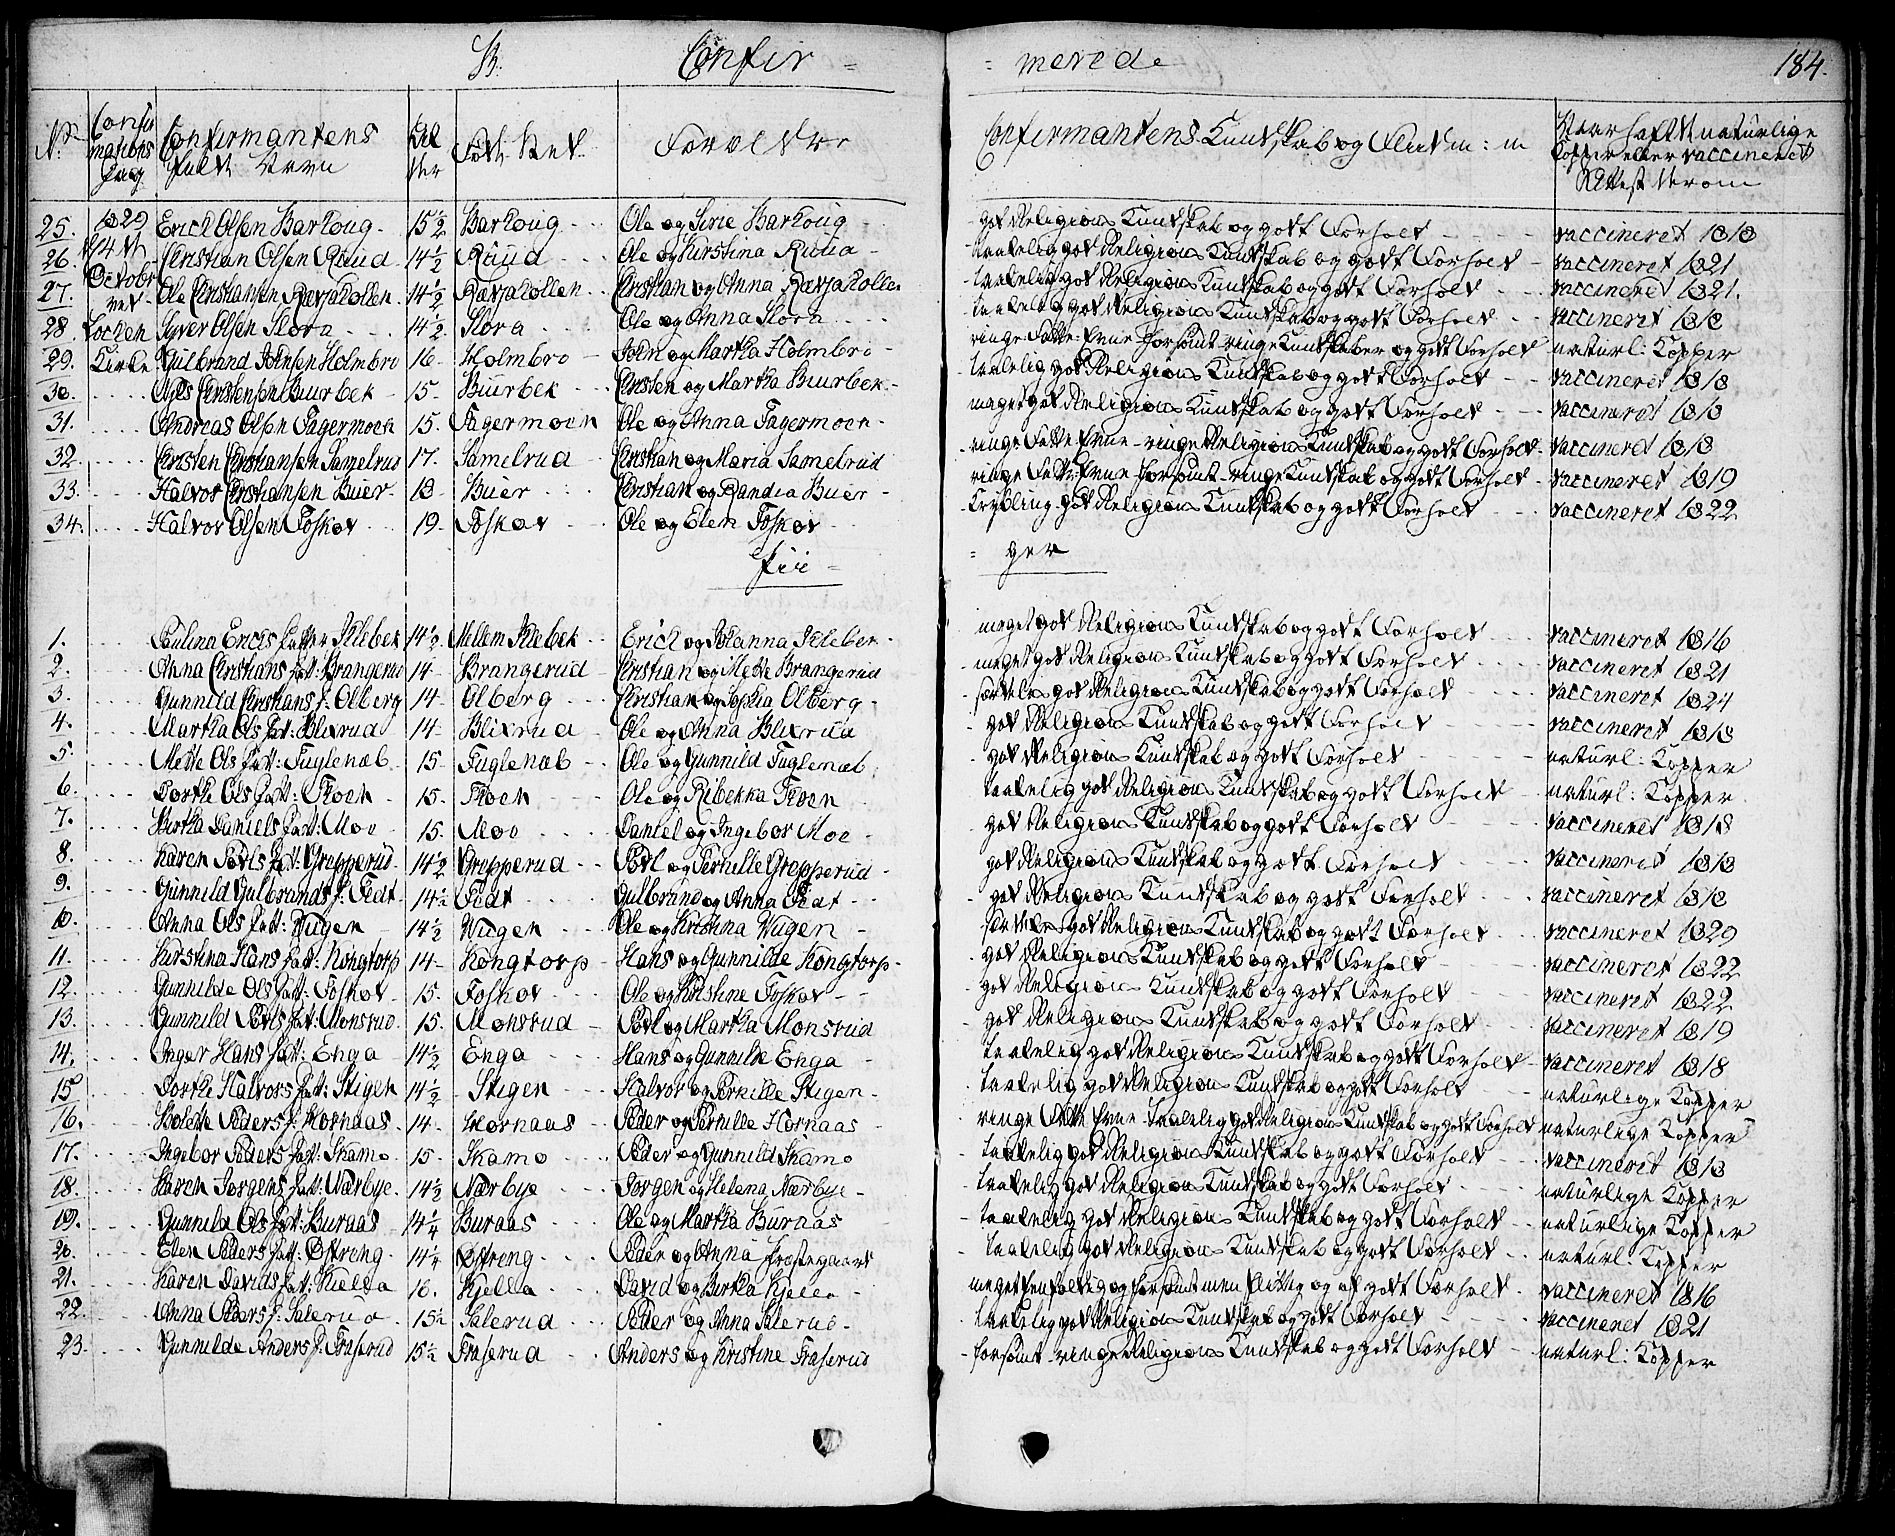 B. Confir = = merede 184.
No Confirmations Dag Confirmantens fulde Navn Alder Føde Sted Forældre Confirmantens Kundskab og Flid m: m Naar haft de naturlige Kopper eller vaccineret Attest derom
25. 1829 Erich Olsen Barkoug 15½ Barkoug Ole og Sirie Barkoug god Religions Kundskab og godt Forhold vaccineret 1818
26. d 4de Christian Olsen Ruud 14½ Ruud Ole og Kirstina Ruud taalelig god Religions Kundskab og godt Forhold vaccineret 1821
27. October Ole Christiansen Rævjakollen 14½ Rævjakollen Christian og Anna Rævjakollen taalelig god Religions Kundskab og godt Forhold vaccineret 1821.
28 ved Locken Syver Olsen Slora 14½ Slora Ole og Anna Slora taalelig god Religions Kundskab og godt Forhold vaccineret 1818
29. Kirke Gulbrand Johnsen Holmbro 16 Holmbro John og Martha Holmbro ringe Fatte Evne forsømt ringe Kundskaber og godt Forhold naturl: Kopper
30. Nils Christensen Buurbek 15 Buurbek Christen og Martha Buurbek taalelig god Religions Kundskab og godt Forhold vaccineret 1818
31. Andreas Olsen Fagermoen 15. Fagermoen Ole og Anna Fagermoen meget god Religions Kundskab og godt Forhold vaccineret 1818
32. Christen Christiansen Samelrud 17. Samelrud Christian og Maria Samelrud ringe Fatte Evne ringe Religions Kundskab og godt Forhold vaccineret 1818
33. Halvor Christiansen Buer 18 Buer Christian og Randia Buer ringe Fatte Evne forsømt ringe Kundskab og godt Forhold vaccineret 1819
34. Halvor Olsen Toskov 19. Toskov Ole og Elen Toskov Krybling god Religions Kundskab og godt Forhold vaccineret 1822
Pii = = ger
1. Paulina Erichs datter Klebek 14½ Mellem Klebek Erich og Johanna Kleben meget god Religions Kundskab og godt Forhold vaccineret 1816
2. Anna Christians dat: Brangerud 14 Brangerud Christian og Mette Brangerud meget god Religions Kundskab og godt Forhold vaccineret 1821
3. Gunnild Christians d: Olberg 14 Olberg Christian og Sophia Olberg særdeles god Religions Kundskab og godt Forhold vaccineret 1824
4. Martha Ols dat: Blixrud 14 Blixrud Ole og Anna Blixrud god Religions Kundskab og godt Forhold vaccineret 1818
5. Mette Ols dat: Fuglenæb 15 Fuglenæb Ole og Gunnild Fuglenæb god Religions Kundskab og godt Forhold naturl: Kopper
6. Dorthe Ols dat: Thoen 15. Thoen Ole og Ribekka Thoen taalelig god Religions Kundskab og godt Forhold naturl: Kopper
7. Birtha Daniels dat: Moe 15. Moe Daniel og Ingebor Moe god Religions Kundskab og godt Forhold vaccineret 1818
8. Karen Povls dat: Grepperud 14½ Grepperud Povl og Pernille Grepperud god Religions Kundskab og godt Forhold vaccineret 1818
9. Gunnild Gulbrands d: Tedt 14½ Tedt Gulbrand og Anna Tedt god Religions Kundskab og godt Forhold vaccineret 1818
10. Anna Ols dat: Wugen 14½ Wugen Ole og Kristina Wugen særdeles god Religions Kundskab og godt Forhold vaccineret 1829
11. Kirstina Hans dat: Kongtorp 14 Kongtorp Hans og Gunnilde Kongtorp god Religions Kundskab og godt Forhold vaccineret 1822
12. Gunnilde Ols dat: Toskov 15. Toskov Ole og Kirstine Toskov god Religions Kundskab og godt Forhold vaccineret 1822
13. Gunnild Povls dat: Monsrud 15. Monsrud Povl og Martha Monsrud god Religions Kundskab og godt Forhold vaccineret 1819
14. Inger Hans dat: Enga 14½ Enga Hans og Gunnilde Enga taalelig god Religions Kundskab og godt Forhold vaccineret 1818
15 Dorthe Halvors dat: Stigen 14½ Stigen Halvor og Pernille Stigen taalelig god Religions Kundskab og godt Forhold naturlige Kopper
16. Bolette Peders d: Hornaas 14 Hornaas Peder og Pernille Hornaas ringe Fatte Evne taalelig god Religions Kundskab og godt Forhold naturlige Kopper
17. Ingebor Peders dat: Skamo 15 Skamo Peder og Gunnild Skamo taalelig god Religions Kundskab og godt Forhold vaccineret 1818
18. Karen Jorgens dat: Nærbye 14½ Nærbye Jorgen og Helena Nærbye taalelig god Religions Kundskab og godt Forhold naturlige Kopper
19. Gunnild Ols dat: Buraas 14¼ Buraas Ole og Martha Buraas taalelig god Religions Kundskab og godt Forhold naturlige Kopper
20. Elen Peders dat: Østreng 14¼ Østreng Peder og Anna Præstegaard taalelig god Religions Kundskab og godt Forhold naturl: Kopper
21. Karen Davids dat: Kjella 16. Kjella David og Birtha Kjella meget Eenfoldig og forsømt men flittig og af godt Forhold vaccineret 1816
22. Anna Peders d: Salerud 15½ Salerud Peder og Anna Salerud taalelig god Religions Kundskab og godt Forhold vaccineret 1821
23. Gunnilde Anders d: Fraserud 15½ Fraserud Anders og Kristine Fraserud forsømt ringe Religions Kundskab og godt Forhold naturl: Kopper